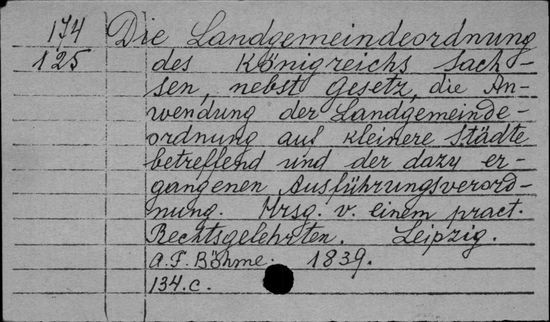 174 Die Landgemeindeordnung
125 des Königreichs Sach-
sen, nebst Gesetz, die An-
wendung der Landgemeinde-
ordnung auf kleinere Städte
betreffend und der dazu er-
gangenen Ausführungsverord-
nung. Hrsg. v. einem pract.
Rechtsgelehrten. Leipzig.
A. F. Böhme. 1839.
134.c.